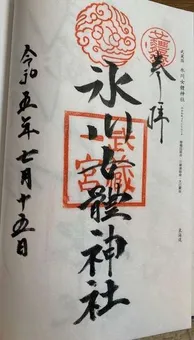 奉拝
氷川女體神社
武蔵一宮
令和五年七月十五日